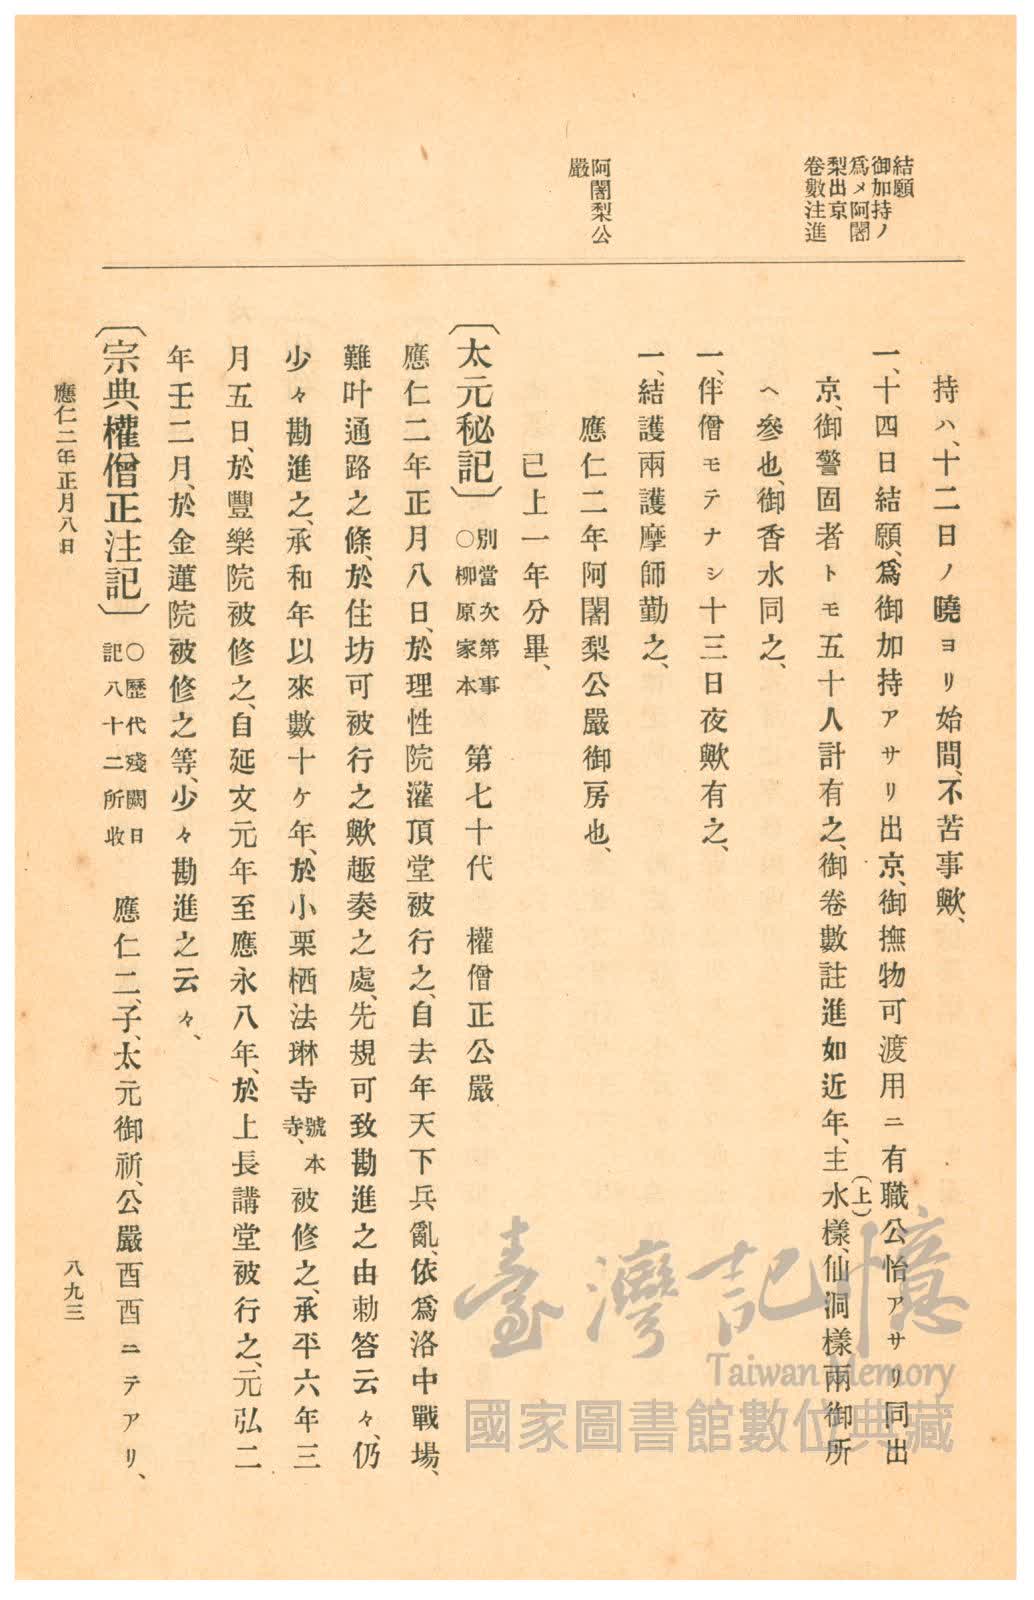 結願
御加持ノ
爲メ阿闍
梨出京
卷數注進
阿闍梨公
嚴
持ハ、十二日ノ曉ヨリ始間、不苦事歟、
一、十四日結願、爲御加持アサリ出京、御撫物可渡用ニ有職公怡アサリ同出
京、御警固者トモ五十人計有之、御卷數註進如近年、主水樣、仙洞樣兩御所
(上)
ヘ參也、御香水同之、
一、伴僧モテナシ十三日夜歟有之、
一、結護兩護摩師勤之、
應仁二年阿闍梨公嚴御房也、
已上一年分畢、
〔太元秘記〕 別當次第事
○柳原家本 第七十代 權僧正公嚴
應仁二年正月八日、於理性院灌頂堂被行之、自去年天下兵亂、依爲洛中戰場、
難叶通路之條、於住坊可被行之歟趣奏之處、先規可致勘進之由勅答云々、仍
少々勘進之、承和年以來數十ケ年、於小栗栖法琳寺 號本
寺、 被修之、承平六年三
月五日、於豐樂院被修之、自延文元年至應永八年、於上長講堂被行之、元弘二
年壬二月、於金蓮院被修之等、少々勘進之云々、
〔宗典權僧正注記〕 ○歷代殘闕日
記八十二所收 應仁二、子、太元御祈、公嚴酉酉ニテアリ、
應仁二年正月八日
八九三
臺灣記憶
Taiwan Memory
國家圖書館數位典藏